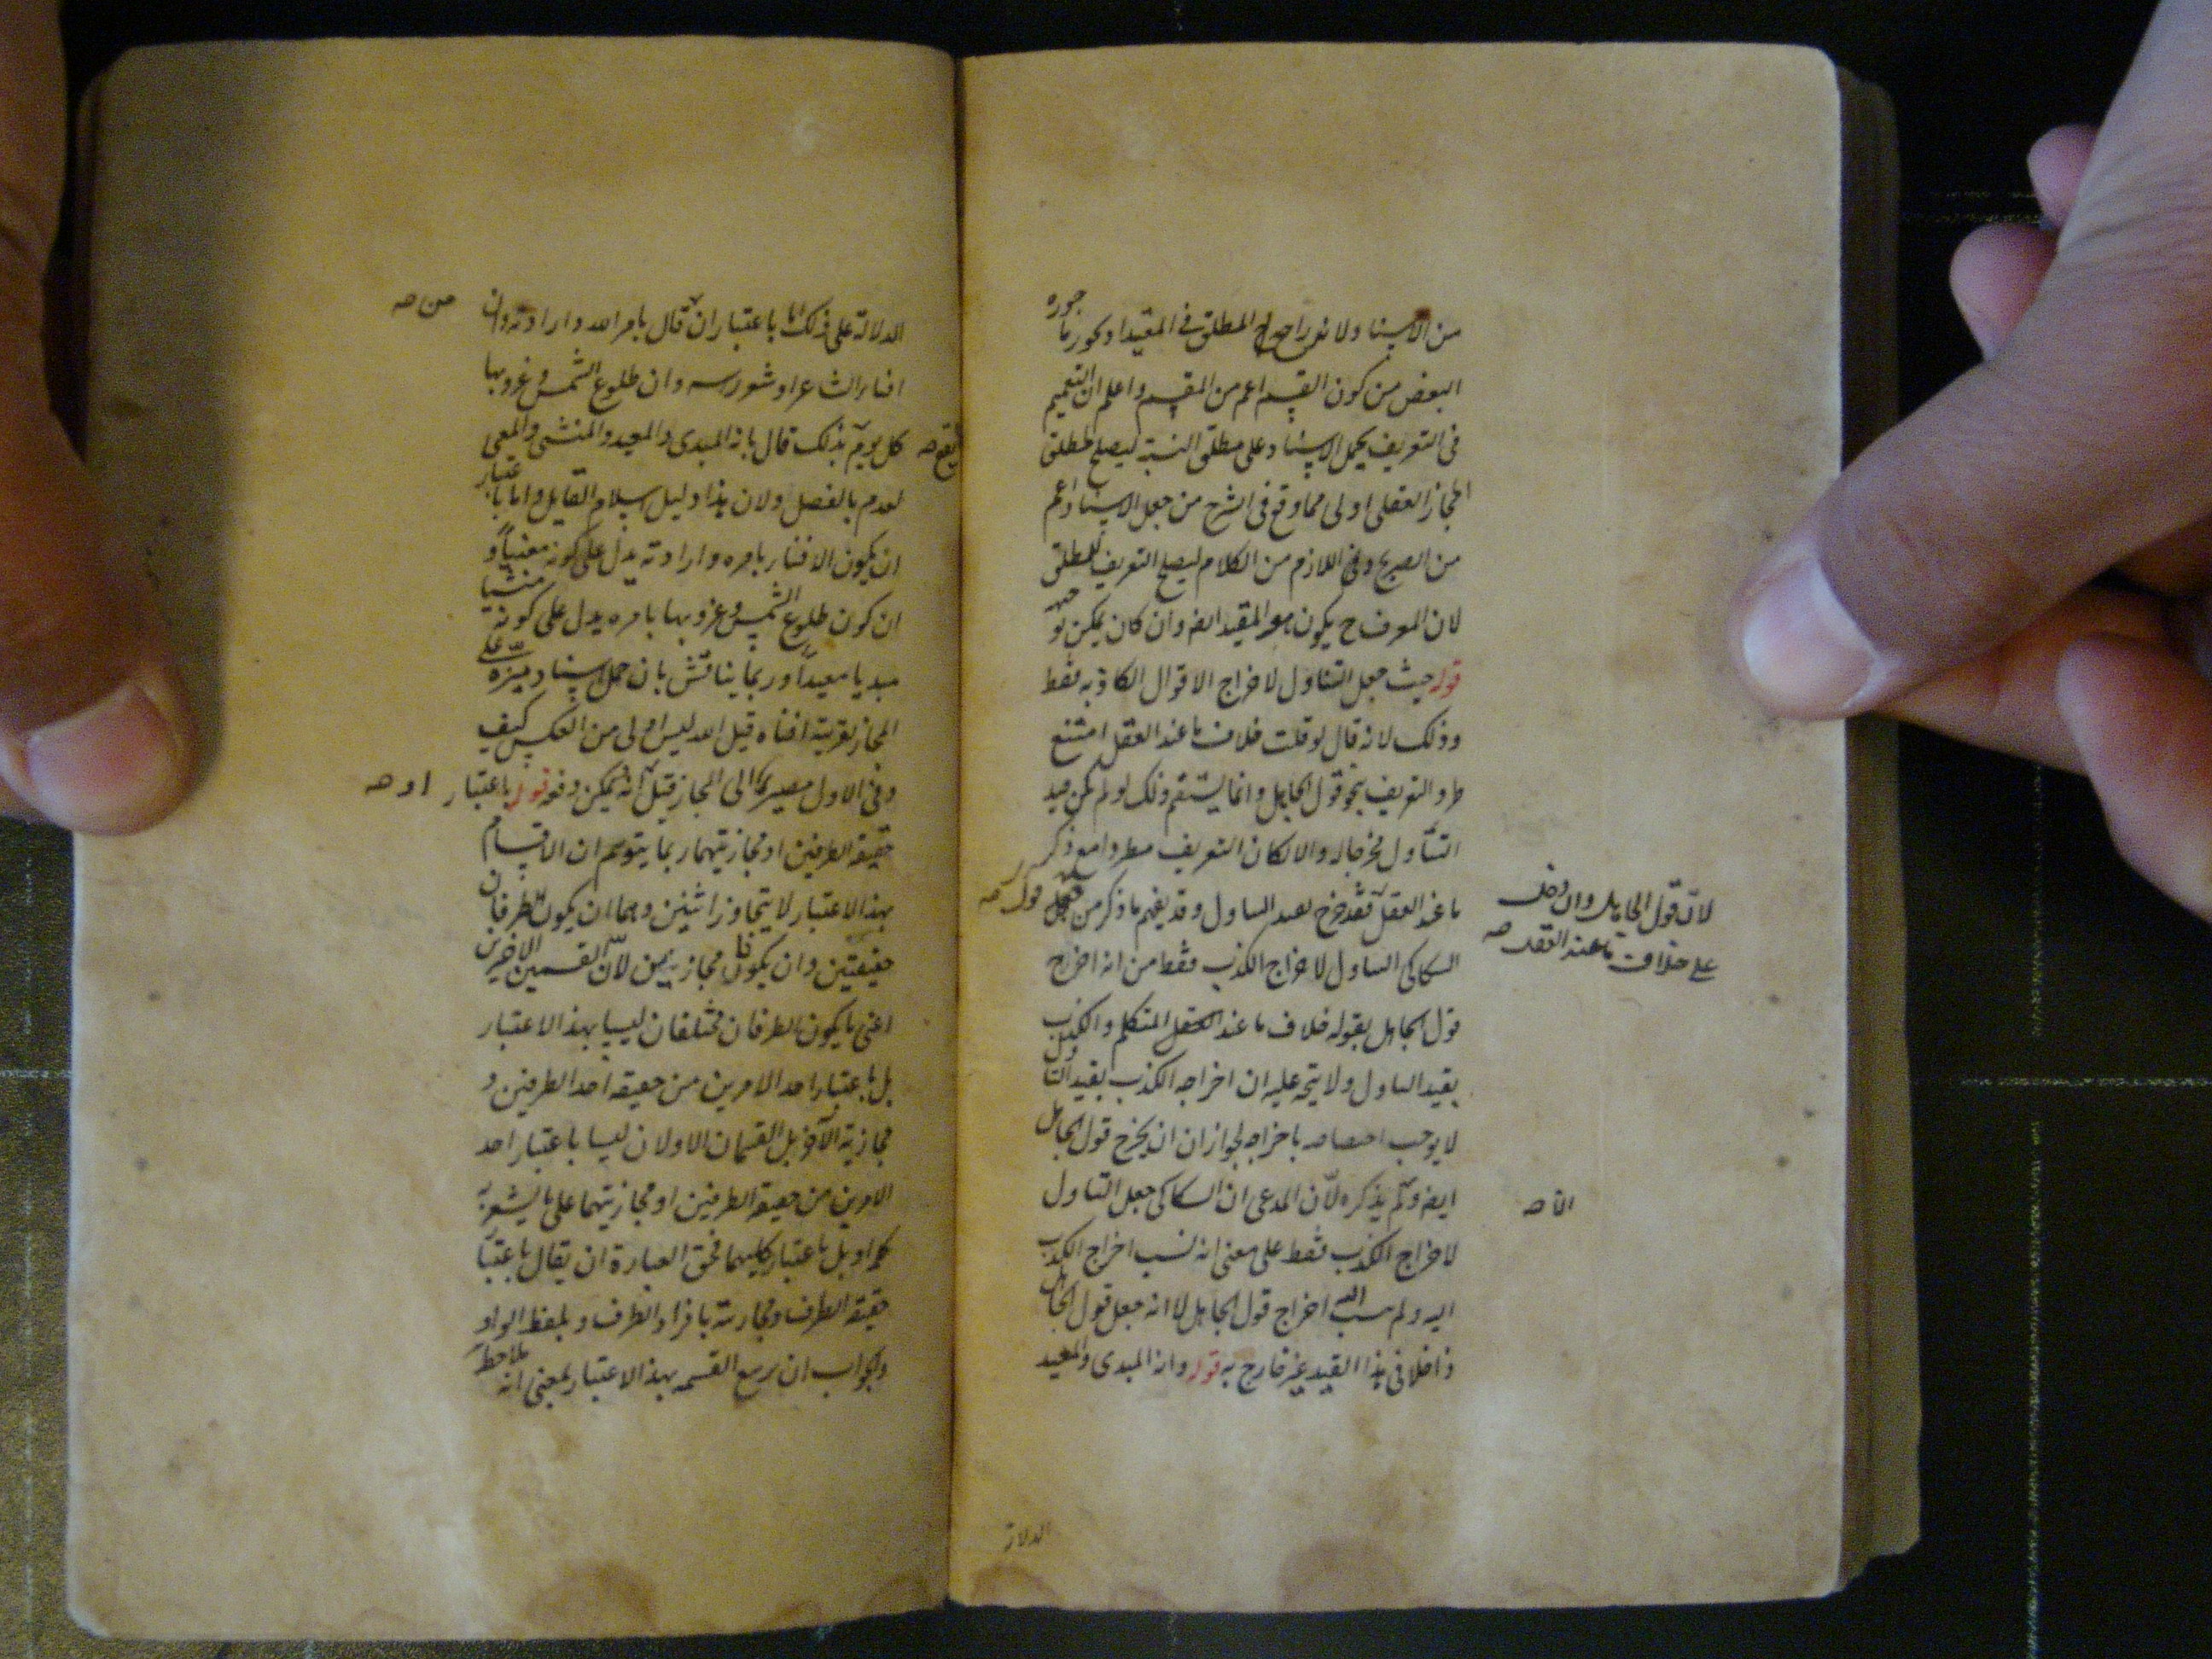 من الاسناد ولا المطلق في المقيد
جوزه
البعض من كون القسم اعم من المقسم واعلم ان التعميم
في التعريف يحمل الاسناد على مطلق النسبة ليصلح لمطلق
المجاز العقلي اولى مما وقع في الشرح من جعل الاسناد اعم
من الصريح و اللازم من الكلام ليصلح التعريف للمطلق
لان المعرف ح يكون هو المقيد ايضا وان كان يمكن
قوله حيث جعل التاول لاخراج الاقوال الكاذبه فقط
وذلك لانه قال لو قلت خلاف ما عند العقل امتنع
طرد التعريف بنحو قول الجاهل وانما يستقيم ذلك لو لم يكن قيد
التاول مخرجا له والا لكان التعريف مطردا مع ذكر
ما عند العقل فقد خرج بقيد التاول وقد يفهم ما ذكر من جعل
السكاكي التاول لاخراج الكذب فقط من انه اخرج
قول الجاهل بقوله خلاف ما عند المتكلم والكذب
بقيد التاول ولا يتجه عليه ان اخراجه الكذب بقيد التاول
لا يوجب اختصاصه باخراجه لجواز ان يخرج قول الجاهل
ايضا ولم يذكره لان المدعى ان السكاكي جعل التاول
لاخراج الكذب فقط على معنى انه نسب اخراج الكذب
اليه ولم ينسب اليه اخراج قول الجاهل لا انه جعل قول الجاهل
داخلا في هذا القيد غير خارج به قوله وانه المبدى والمعيد
لان قول الجاهل وان دخل
على خلاف ما عند العقل صح
قول صح
الا صح
الدلالة
الدلالة على ذلك اما باعتبار ان قال بامر الله وارادته وان
من صح
افناء الشاعر او شعر راسه وان طلوع الشمس وغروبها
كل يوم بذلك قال بانه المبدى والمعيد والمنشى والمفنى
لعدم بالفصل ولان هذا دليل اسلام القايل واما باعتبار
ان يكون الافناء بامره وارادته يدل على كونه مفنيا و
ان كون طلوع الشمس وغروبها بامره يدل على كونه منشيا
مبديا معيدا وربما يناقش بان حمل اسناد ميزه على
المجاز بقرينة افناه قيل الله ليس اولى من العكس كيف
وفي الاول مصير الى المجاز قبل انه يمكن دفعه قوله باعتبار
او صح
حقيقة الطرفين او مجازيتهما ربما يتوهم ان الاقسام
بهذا الاعتبار لا يتجاوز اثنين وهما ان يكون الطرفان
حقيقتين وان يكونا مجازيين لان القسمين الاخيرين
اعني ما يكون الطرفان مختلفان ليسا بهذا الاعتبار
بل باعتبار احد الامرين من حقيقة احد الطرفين و
مجازية الآخر بل القسمان الاولان ليسا باعتبار احد
الامرين من حقيقة الطرفين او مجازيتهما على ما يشعر به
كلمة او بل باعتبار كليهما فحق العبارة ان يقال باعتبار
حقيقة الطرف ومجازيته بافراد الطرف و بلفظ الواو
والجواب ان القسمة بهذا الاعتبار بمعنى انه بملاحظة